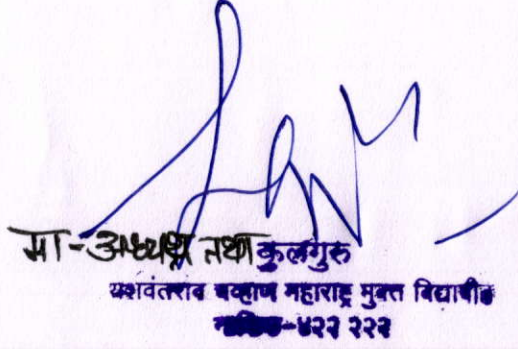 मा-अध्यक्ष तथा कुलगुरु
यशवंतराव चव्हाण महाराष्ट्र मुक्त विद्यापीठ
नाशिक-४२२ २२२